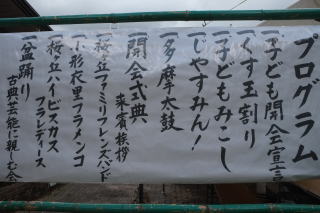 プログラム
一、子ども開会宣言
一、くす玉割り
一、子どもみこし
一、じやすみん!
一、多摩太鼓
一、開会式典
来賓挨拶
一、桜ヶ丘ファミリーフレンズバンド
一、小形衣里フラメンコ
一、桜ヶ丘ハイビスカス
フラシスターズ
一、盆踊り
古典芸能に親しむ会